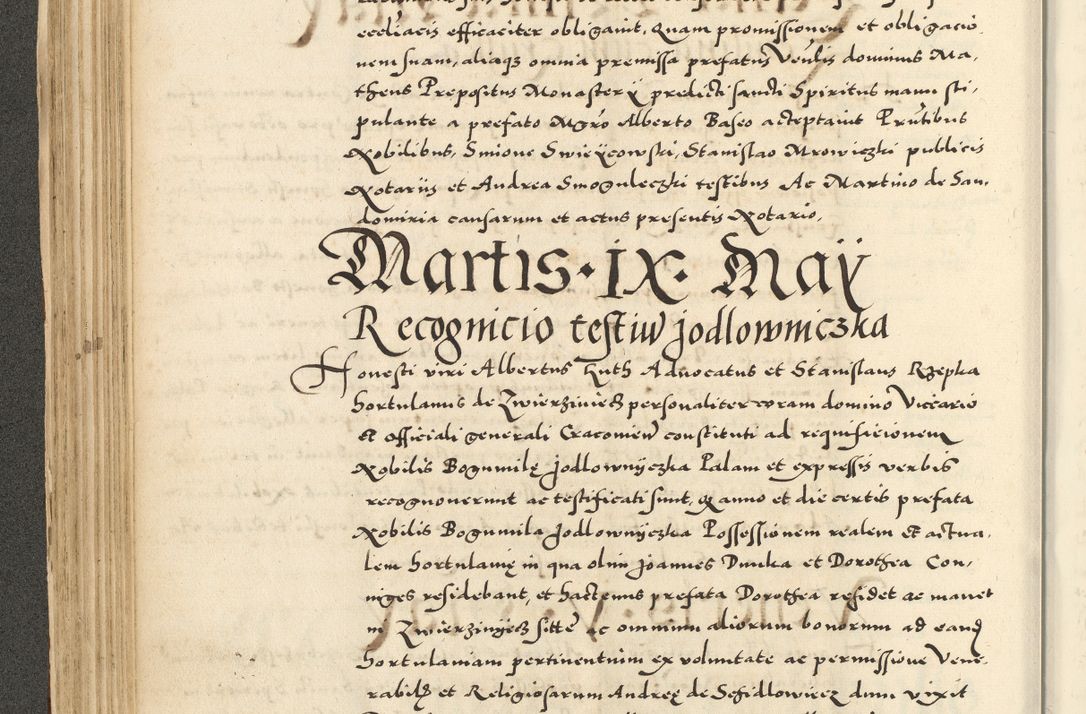 ecclesiasticis efficaciter obligavit, Quam promissionem et obligacio
nem suam, aliaque omnia premissa prefatus Venlis dominus Ma,
theus Prepositus Monastery predicti sancti Spiritus manu sti,
pulante a prefato Mgro Alberto Baseo acceptavit Prntibus
Nobilibus, Simone Swieÿcowski, Stanislao Mrowiczki publicis
Notariis et Andrea Smoguleczki testibus Ac Martino de San,
domiria causarum et actus presentis Notario,
Martis · IX · Maÿ
Recognicio testiu Jodlowniczka
Honesti viri Albertus Kuth Advocatus et Stanislaus Rzepka
hortulanus de Zwierziniecz personaliter coram domino Viccario
et officiali generali Cracovien constituti ad requisicionem
Nobilis Bogumile Jodlownyczka Palam et expressis verbis
recognoverunt ac testificati sunt, q anno et die certis prefata
Nobilis Bogumila Jodlownyczka Possessionem realem et actua,
lem hortulanie in qua olim Joannes Dunka et Dorothea Con,
iuges residebant, et hactenus prefata Dorothea residet ac manet
in Zwierzinyecz sitte ac omnium aliorum bonorum ad eand
hortulaniam pertinentium ex voluntate ac permissione Vene,
rabilis et Religiosarum Andree de Sesidlowicz dum vixit